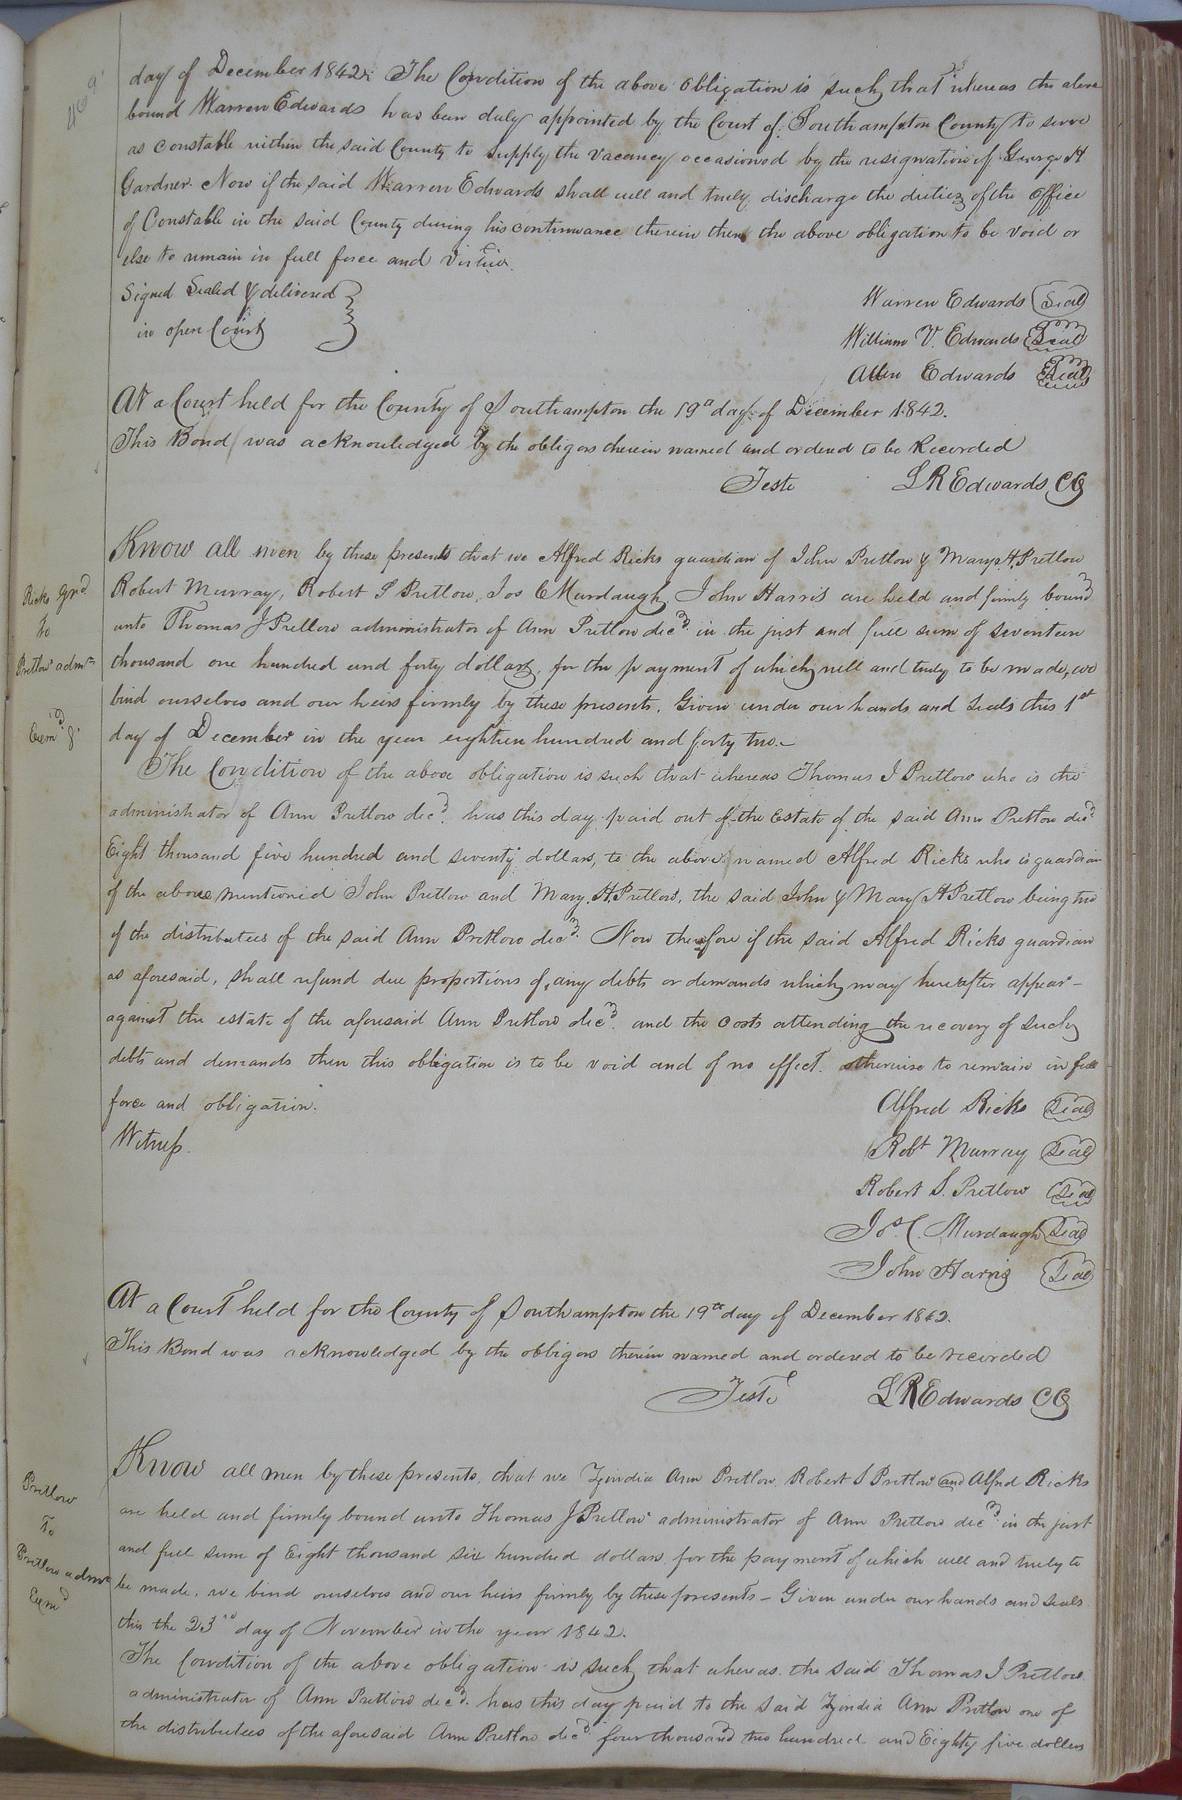 469
day of December 1842. The Condition of the above obligation is such that whereas the above
bound Warren Edwards has been duly appointed by the Court of Southampton County to serve
as constable within the said County to supply the vacancy occasioned by the resignation of George H
Gardner. Now if the said Warren Edwards shall well and truly discharge the duties of the office
of Constable in the said County during his continuance therein then the above obligation to be void or
else to remain in full force and virtue.
Signed Sealed & delivered
in open Court
Warren Edwards Seal
William V. Edwards Seal
Allen Edwards Seal
At a Court held for the County of Southampton the 19th day of December 1842.
This Bond was acknowledged by the obligors therein named and ordered to be Recorded
Teste L R Edwards CC
Ricks Gnd
To
Pretlow admr
Exmd
Know all men by these presents that we Alfred Ricks guardian of John Pretlow & Mary H. Pretlow
Robert Murray, Robert S Pretlow, Jos C Murdaugh, John Harris are held and firmly bound
unto Thomas J Pretlow administrator of Ann Pretlow decd in the just and full sum of seventeen
thousand one hundred and forty dollars, for the payment of which well and truly to be made, we
bind ourselves and our heirs firmly by these presents. Given under our hands and seals this 1st
day of December in the year eighteen hundred and forty two.
The Condition of the above obligation is such that whereas Thomas J Pretlow who is the
administrator of Ann Pretlow decd. has this day paid out of the Estate of the said Ann Pretlow decd
Eight thousand five hundred and seventy dollars, to the above named Alfred Ricks who is guardian
of the above mentioned John Pretlow and Mary H. Pretlow, the said John & Mary H Pretlow being two
of the distributees of the said Ann Pretlow decd. Now therefore if the said Alfred Ricks guardian
as aforesaid, shall refund due proportions of, any debts or demands which may hereafter appear
against the estate of the aforesaid Ann Pretlow decd. and the costs attending the recovery of such
debts and demands then this obligation is to be void and of no effect. otherwise to remain in full
force and obligation.
Witness.
Alfred Ricks Seal
Robt Murray Seal
Robert S. Pretlow Seal
Jos. C. Murdaugh Seal
John Harris Seal
At a Court held for the County of Southampton the 19th day of December 1842.
This Bond was acknowledged by the obligors therein named and ordered to be recorded
Teste L R Edwards CC
Pretlow
To
Pretlow admr
Exmd
Know all men by these presents, that we Ann Pretlow Robert S Pretlow and Alfred Ricks
are held and firmly bound unto Thomas J Pretlow administrator of Ann Pretlow decd in the just
and full sum of Eight thousand six hundred dollars for the payment of which well and truly to
be made, we bind ourselves and our heirs firmly by these presents - Given under our hands and seals
this the 23rd day of November in the year 1842.
The Condition of the above obligation is such that whereas the said Thomas J Pretlow
administrator of Ann Pretlow decd. has this day paid to the said Ann Pretlow one of
the distributees of the aforesaid Ann Pretlow decd four thousand two hundred and Eighty five dollars